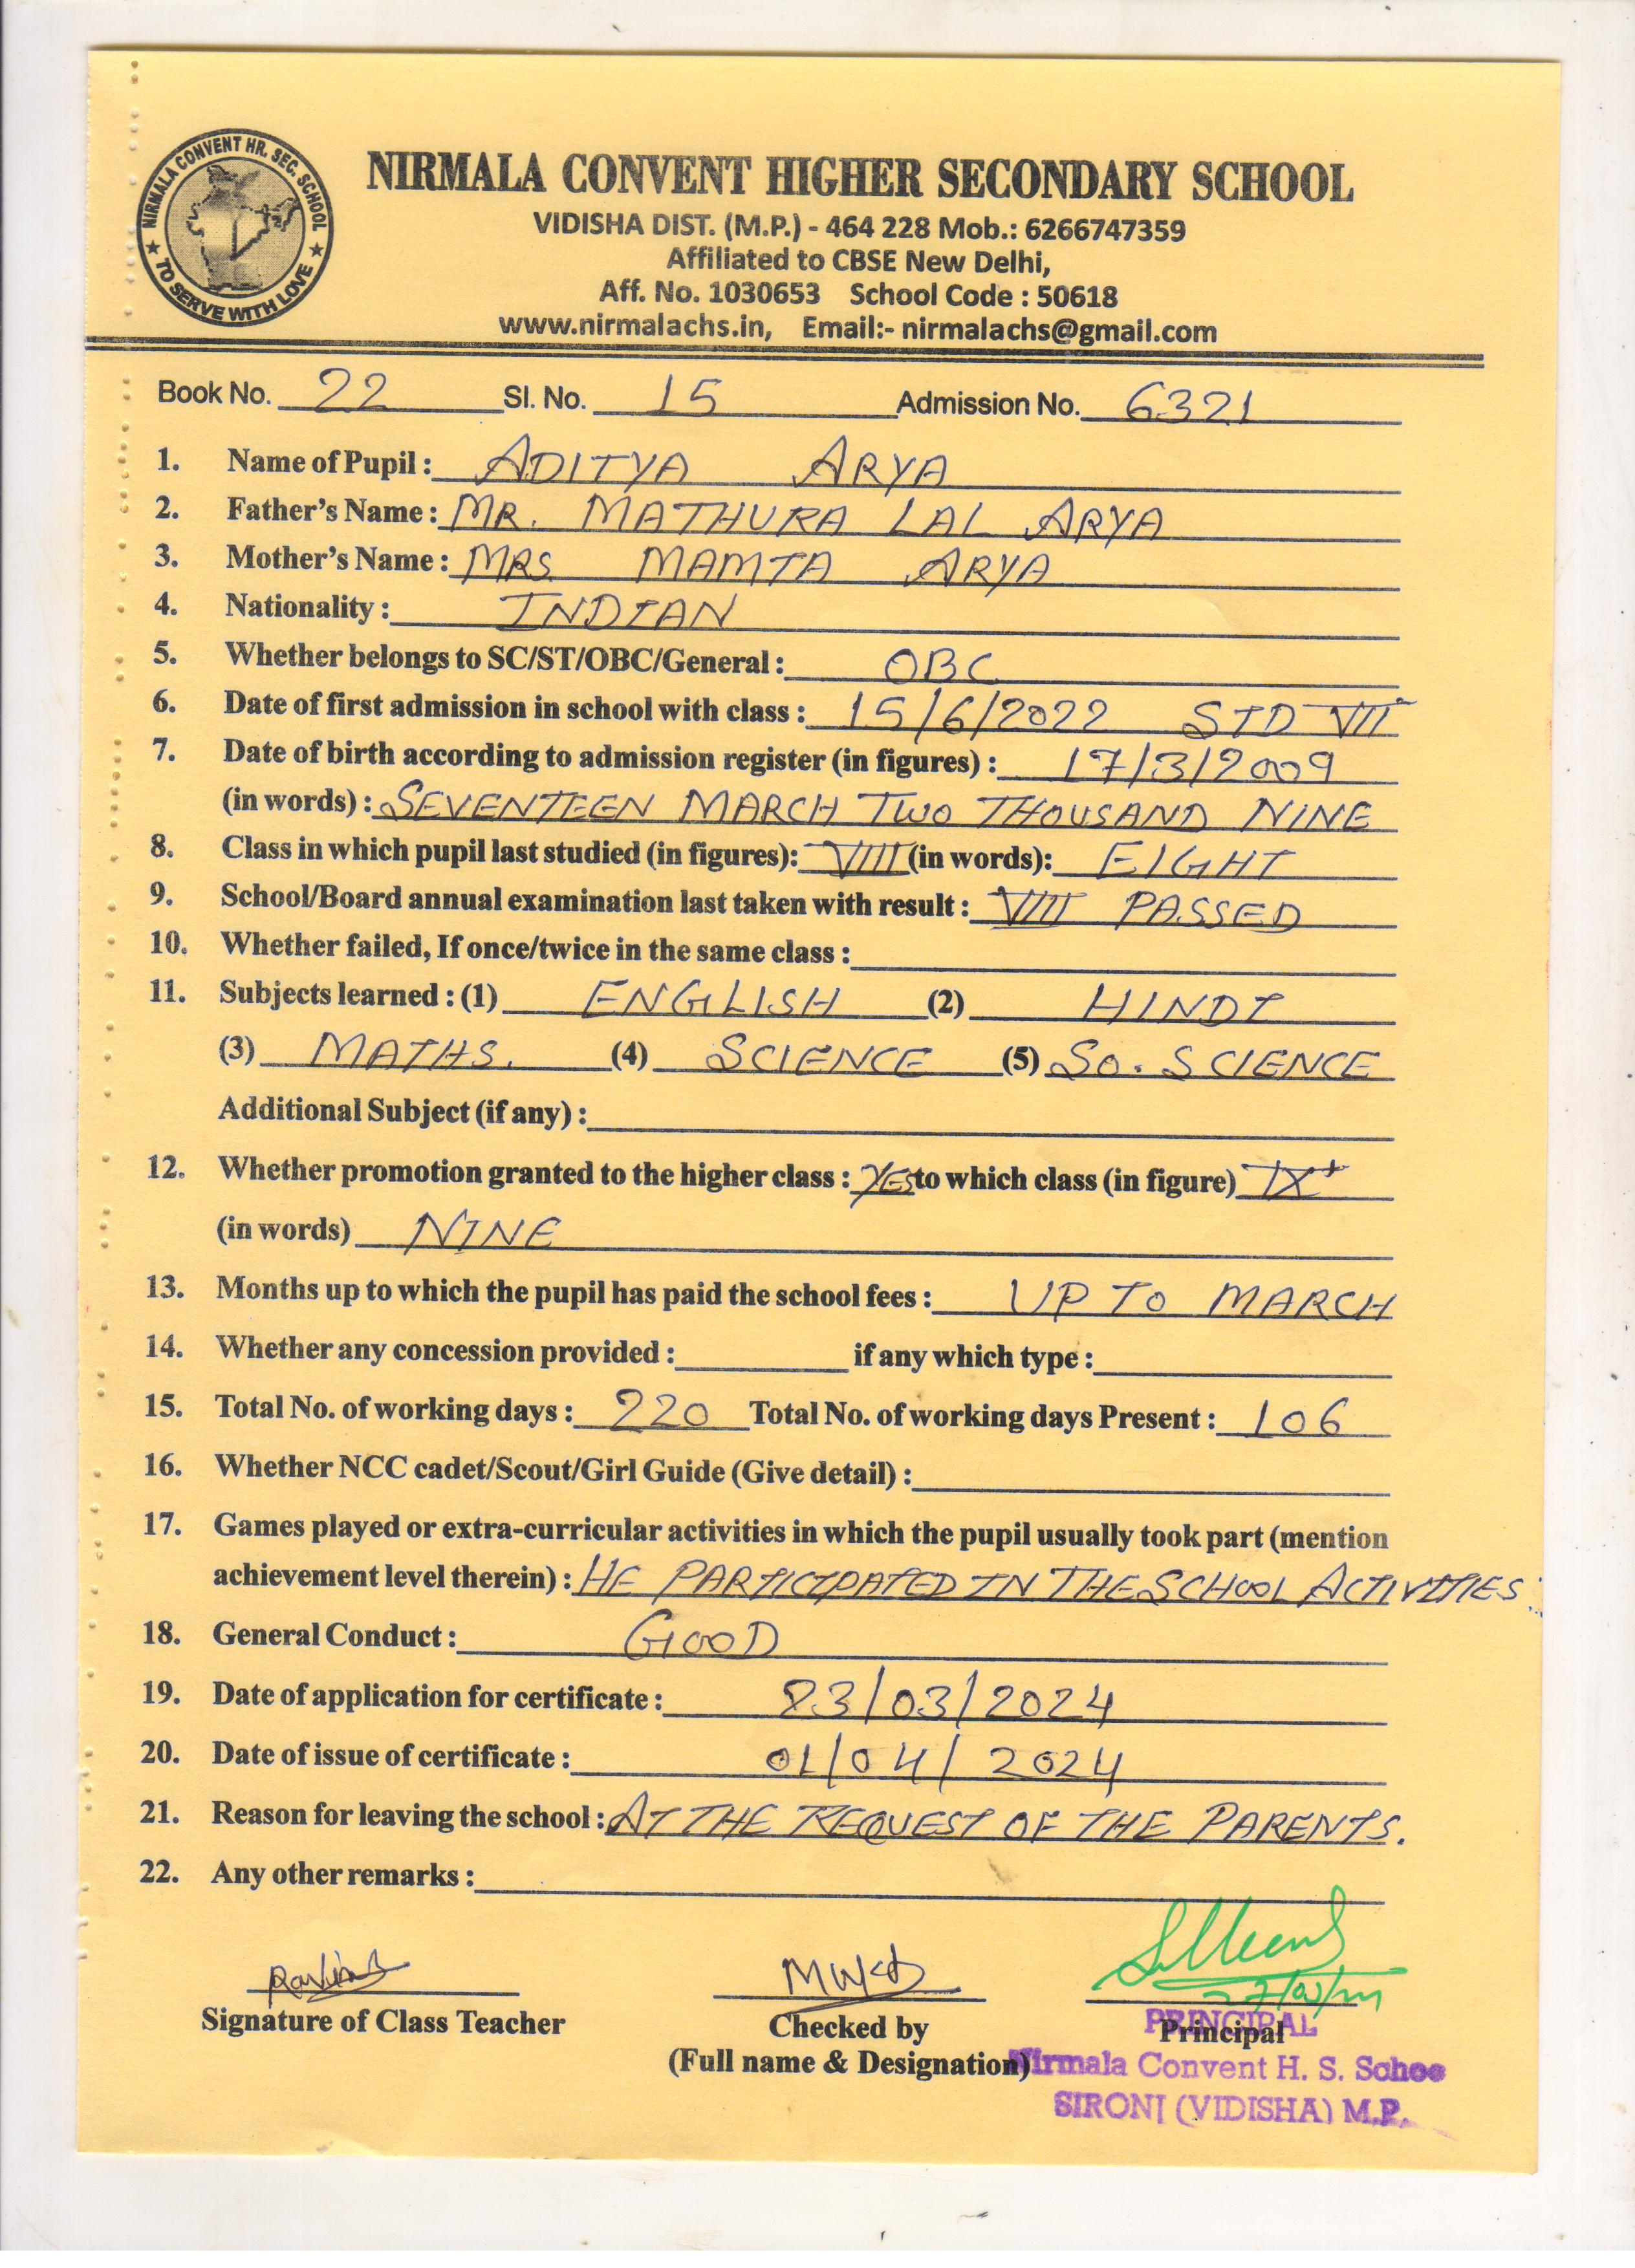 NIRMALA CONVENT HR. SEC. SCHOOL
★ TO SERVE WITH LOVE ★
NIRMALA CONVENT HIGHER SECONDARY SCHOOL
VIDISHA DIST. (M.P.) - 464 228 Mob.: 6266747359
Affiliated to CBSE New Delhi,
Aff. No. 1030653 School Code : 50618
www.nirmalachs.in, Email:- nirmalachs@gmail.com
Book No. 22 Sl. No. 15 Admission No. 6321
1. Name of Pupil : ADITYA ARYA
2. Father's Name : MR. MATHURA LAL ARYA
3. Mother's Name : MRS. MAMTA ARYA
4. Nationality : INDIAN
5. Whether belongs to SC/ST/OBC/General : OBC
6. Date of first admission in school with class : 15/6/2022 STD VII
7. Date of birth according to admission register (in figures) : 17/3/2009
(in words) : SEVENTEEN MARCH TWO THOUSAND NINE
8. Class in which pupil last studied (in figures): VIII (in words): EIGHT
9. School/Board annual examination last taken with result : VIII PASSED
10. Whether failed, If once/twice in the same class :
11. Subjects learned : (1) ENGLISH (2) HINDI
(3) MATHS. (4) SCIENCE (5) SO. SCIENCE
Additional Subject (if any) :
12. Whether promotion granted to the higher class : YES to which class (in figure) IX
(in words) NINE
13. Months up to which the pupil has paid the school fees : UP TO MARCH
14. Whether any concession provided : if any which type :
15. Total No. of working days : 220 Total No. of working days Present : 106
16. Whether NCC cadet/Scout/Girl Guide (Give detail) :
17. Games played or extra-curricular activities in which the pupil usually took part (mention
achievement level therein) : HE PARTICIPATED IN THE SCHOOL ACTIVITIES.
18. General Conduct : GOOD
19. Date of application for certificate : 23/03/2024
20. Date of issue of certificate : 01/04/2024
21. Reason for leaving the school : AT THE REQUEST OF THE PARENTS.
22. Any other remarks :
Signature of Class Teacher Checked by Principal
(Full name & Designation)
PRINCIPAL
Nirmala Convent H. S. Schoo
SIRONJ (VIDISHA) M.P.